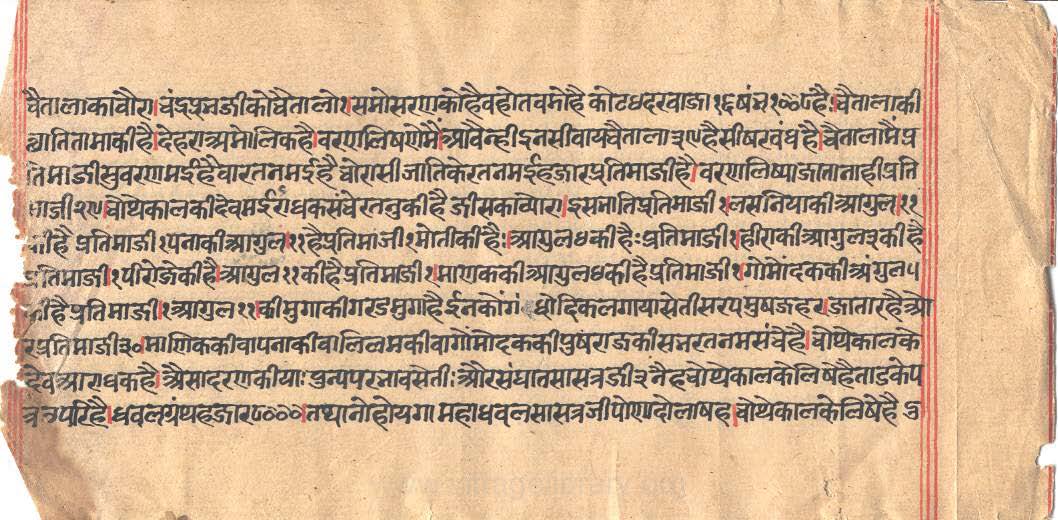 चैतालाकावौरा।चंद्रप्रनजीकोचैतालो१समोसरणकोहैवहोतवमोहै कोटधदरवाजा१६षंन१००८है।चैतालाकी
ष्यातितामाकीहै।देहराअमोलिकहै।वरणलिषणमै।आवैन्हीइनसीवायचैताला३९हैसीषरवंधहै।चैतालामैप्र
तिमाजीसुवरणमईहैवारतनमईहै चोरासीजातिकेरतनमईहजारप्रतिमाजीहै।वरणलिष्याजातानाहीप्रति
माजी२९।चोथकालकीदेवमई जीसकाव्यौरा।इसनातिप्रतिमाजी१लसनियाकीआगुल।११
कीहै प्रतिमाजी१पनाकीआगुल११हैप्रतिमाजी१मोतीकीहैः।आगुल४कीहैःप्रतिमाजी१हीराकीआगुल३कीहै
प्रतिमाजी१पीरोजेकीहै।आगुल११कीहैप्रतिमाजी१माणककीआगुल४कीहैप्रतिमाजी१गोमेदककीअंगुल५
कीहैप्रतिमाजी।१आगुल११कीमुगाकीगरडमुगाहैईनको धोदिकलगायासेतीसरपमुषजहर।जातारहैओ
रप्रतिमाजी३०माणिककीवापनाकीवालिलमकीवागोमोदककीपुषराजकीसतरतनमसंचेहै।चोथेकालके
देवआराधकहै।औसादरणकीयाः पुन्यपरनावसेतीःऔरसंघातसासत्रजी३नैहचोथेकालकेलिषहैताडकेप
त्रउपरिहै।धवलग्रंथहजार७००००।तथानोहोयगा महाधवलसासत्रजीपोणदोलाषह।चोथेकालकेलिषेहै